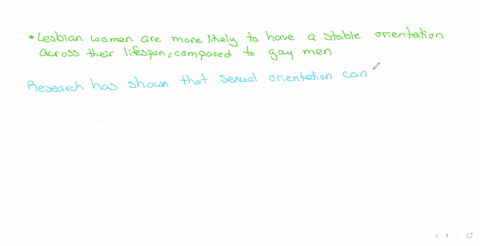 • Lesbian women are more likely to have a stable orientation
across their lifespan, compared to gay men
Research has shown that sexual orientation can